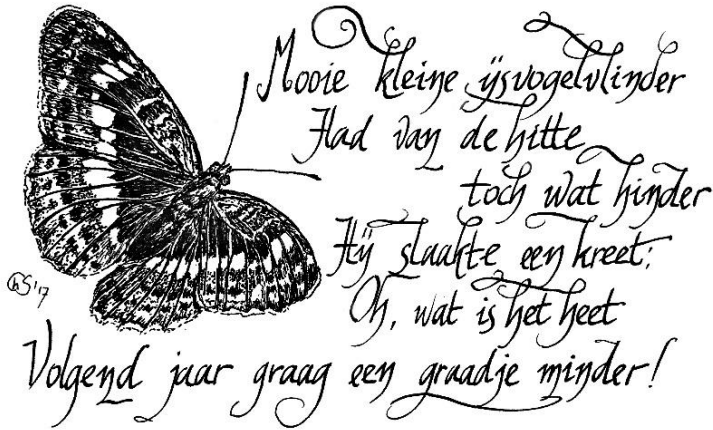 Mooie kleine ijsvogelvlinder
Had van de hitte
toch wat hinder
Hij slaakte een kreet:
Oh, wat is het heet
Volgend jaar graag een graadje minder!